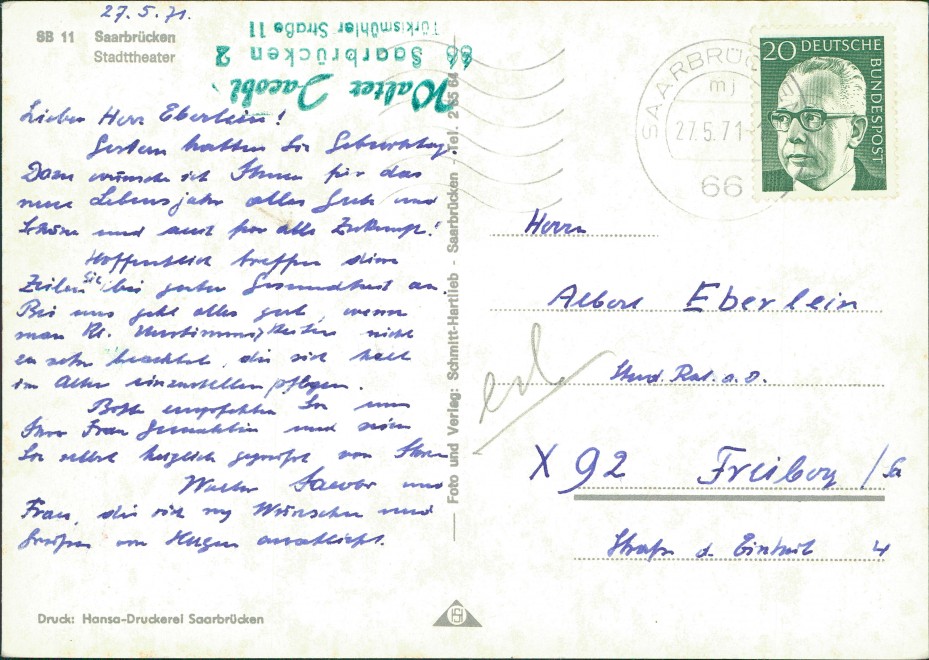 27.5.71.
SB 11 Saarbrücken
Stadttheater
Walter Jacobi
66 Saarbrücken 2
Türkismühler Straße 11
Tel. 2 65 64
Lieber Herr Eberlein!
Gestern hatten Sie Geburtstag.
Dazu wünsche ich Ihnen für das
neue Lebensjahr alles Gute und
Schöne und auch für alle Zukunft!
Hoffentlich treffen diese
Zeilen Sie bei guter Gesundheit an.
Bei uns geht alles gut, wenn
man kl. Unstimmigkeiten nicht
zu sehr beachtet, die sich halt
im Alter einzustellen pflegen.
Bitte empfehlen Sie uns
Ihrer Frau Gemahlin und seien
Sie selbst herzlich gegrüßt von Ihrem
Walter Jacobi und
Frau, die sich my Wünschen und
Grüßen von Herzen anschließt.
Foto und Verlag: Schmitt-Hartlieb - Saarbrücken
Druck: Hansa-Druckerei Saarbrücken
SAARBRÜC
mj
27.5.71
66
20 DEUTSCHE
BUNDESPOST
Herrn
Albert Eberlein
Stud. Rat. a. D.
X 92 Freiberg /Sa
Straße d. Einheit 4